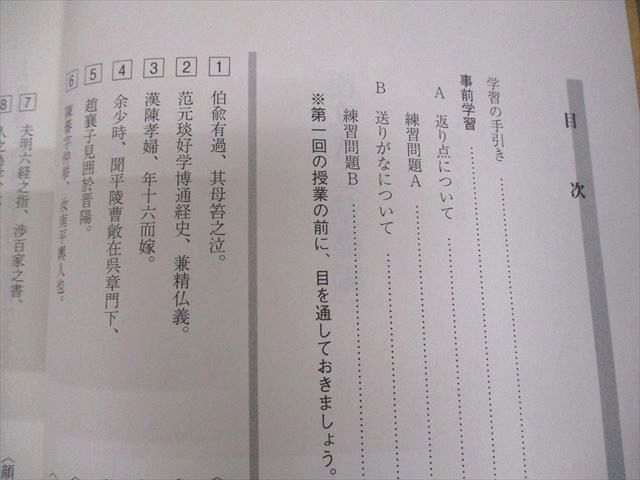 目次
学習の手引き
事前学習
A 返り点について
練習問題A
B 送りがなについて
練習問題B
※第一回の授業の前に、目を通しておきましょう。
1 伯兪有過、其母笞之泣。
2 范元琰好学博通経史、兼精仏義。
3 漢陳孝婦、年十六而嫁。
4 余少時、聞平陵曹敞在呉章門下、
5 趙襄子見囲於晋陽。
6 陳蕃字仲挙、汝南平輿人也。
7 夫明六経之指、渉百家之書、
8
〈顔